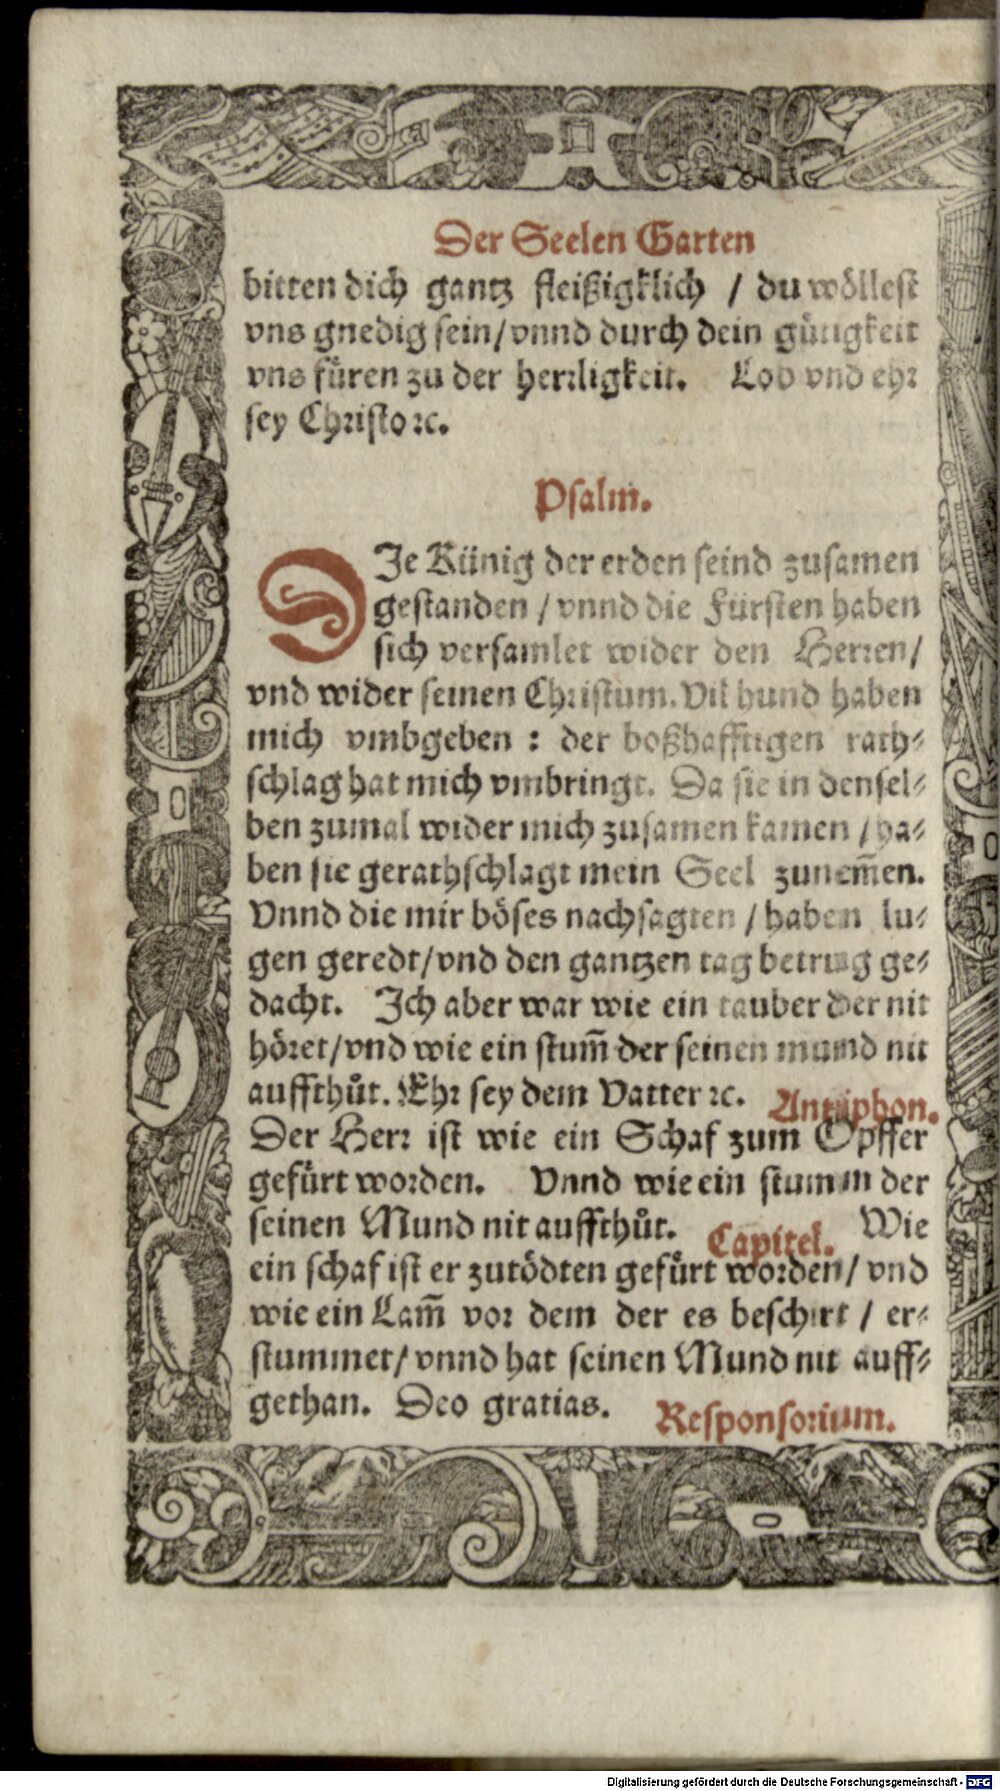 Der Seelen Garten
bitten dich gantz fleißigklich / du wöllest
vns gnedig sein/vnnd durch dein gütigkeit
vns fůren zu der herꝛligkeit. Lob vnd ehꝛ
sey Chꝛisto ꝛc.
Psalm.
DJe Künig der erden seind zusamen
gestanden / vnnd die Fürsten haben
sich versamlet wider den Herꝛen/
vnd wider seinen Chꝛistum. Vil hund haben
mich vmbgeben : der boßhafftigen rath⸗
schlag hat mich vmbringt. Da sie in densel⸗
ben zumal wider mich zusamen kamen / ha⸗
ben sie gerathschlagt mein Seel zunem̃en.
Vnnd die mir böses nachsagten / haben lu⸗
gen geredt/vnd den gantzen tag betrug ge⸗
dacht. Jch aber war wie ein tauber der nit
höꝛet/vnd wie ein stum̃ der seinen mund nit
auffthůt. Ehꝛ sey dem Vatter ꝛc. Antiphon.
Der Herꝛ ist wie ein Schaf zum Opffer
gefůrt woꝛden. Vnnd wie ein stumm der
seinen Mund nit auffthůt. Capitel. Wie
ein schaf ist er zutödten gefůrt woꝛden/ vnd
wie ein Lam̃ voꝛ dem der es beschirt / er⸗
stummet/ vnnd hat seinen Mund nit auff⸗
gethan. Deo gratias. Responsoꝛium.
Digitalisierung gefördert durch die Deutsche Forschungsgemeinschaft - DFG